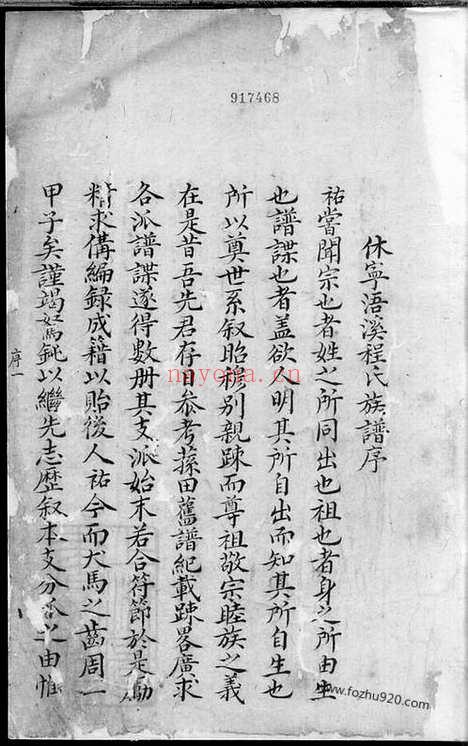 917468
休寧浯溪程氏族譜序
祐嘗聞宗也者姓之所同出也祖也者身之所由生
也譜諜也者盖欲人明其所自出而知其所自生也
所以奠世系叙昭穆别親踈而尊祖敬宗睦族之義
在是昔吾先君存日叅考蓀田舊譜紀載踈畧廣求
各派譜諜遂得數册其支派始末若合符節於是勵
精求備編録成籍以貽後人祐今而犬馬之齒周一
甲子矣謹竭駑鈍以繼先志歷叙本支分
之由惟
序一
nayona.cn
www.fozhu920.com